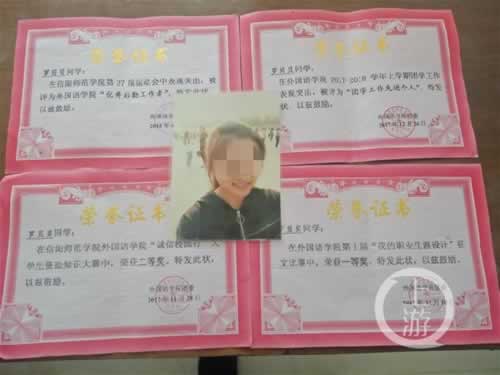 荣誉证书
同学:
在信阳师范学院第27届运动会中表现突出,被
评为外国语学院"优秀后勤工作者",特发此状,
以兹鼓励。
荣誉证书
同学:
在外国语学院2017-2018学年上学期团学工作
表现突出,被评为"团学工作先进个人",特发
状,以兹鼓励。
荣誉证书
同学:
在信阳师范学院外国语学院"诚信校园行"大
学生资助知识大赛中,荣获二等奖。特发此状,
以兹鼓励。
荣誉证书
同学:
在外国语学院第十届"我的职业生涯设计"征
文比赛中,荣获一等奖。特发此状,以兹鼓励。
上游